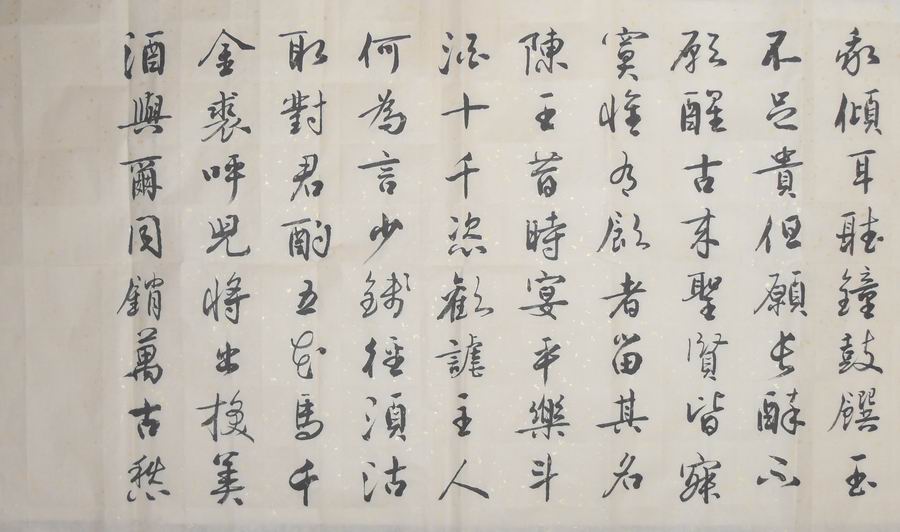 我傾耳聽鐘鼓饌玉
不足貴但願長醉不
願醒古來聖賢皆寂
寞惟有飲者留其名
陳王昔時宴平樂斗
酒十千恣歡謔主人
何為言少錢徑須沽
取對君酌五花馬千
金裘呼兒將出換美
酒與爾同銷萬古愁